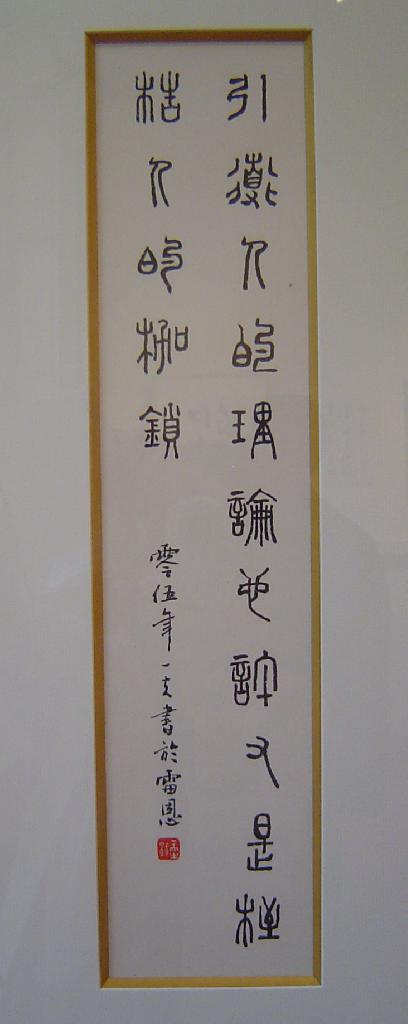 引導人的理論也許又是桎
梏人的枷鎖
零伍年一書於雷恩